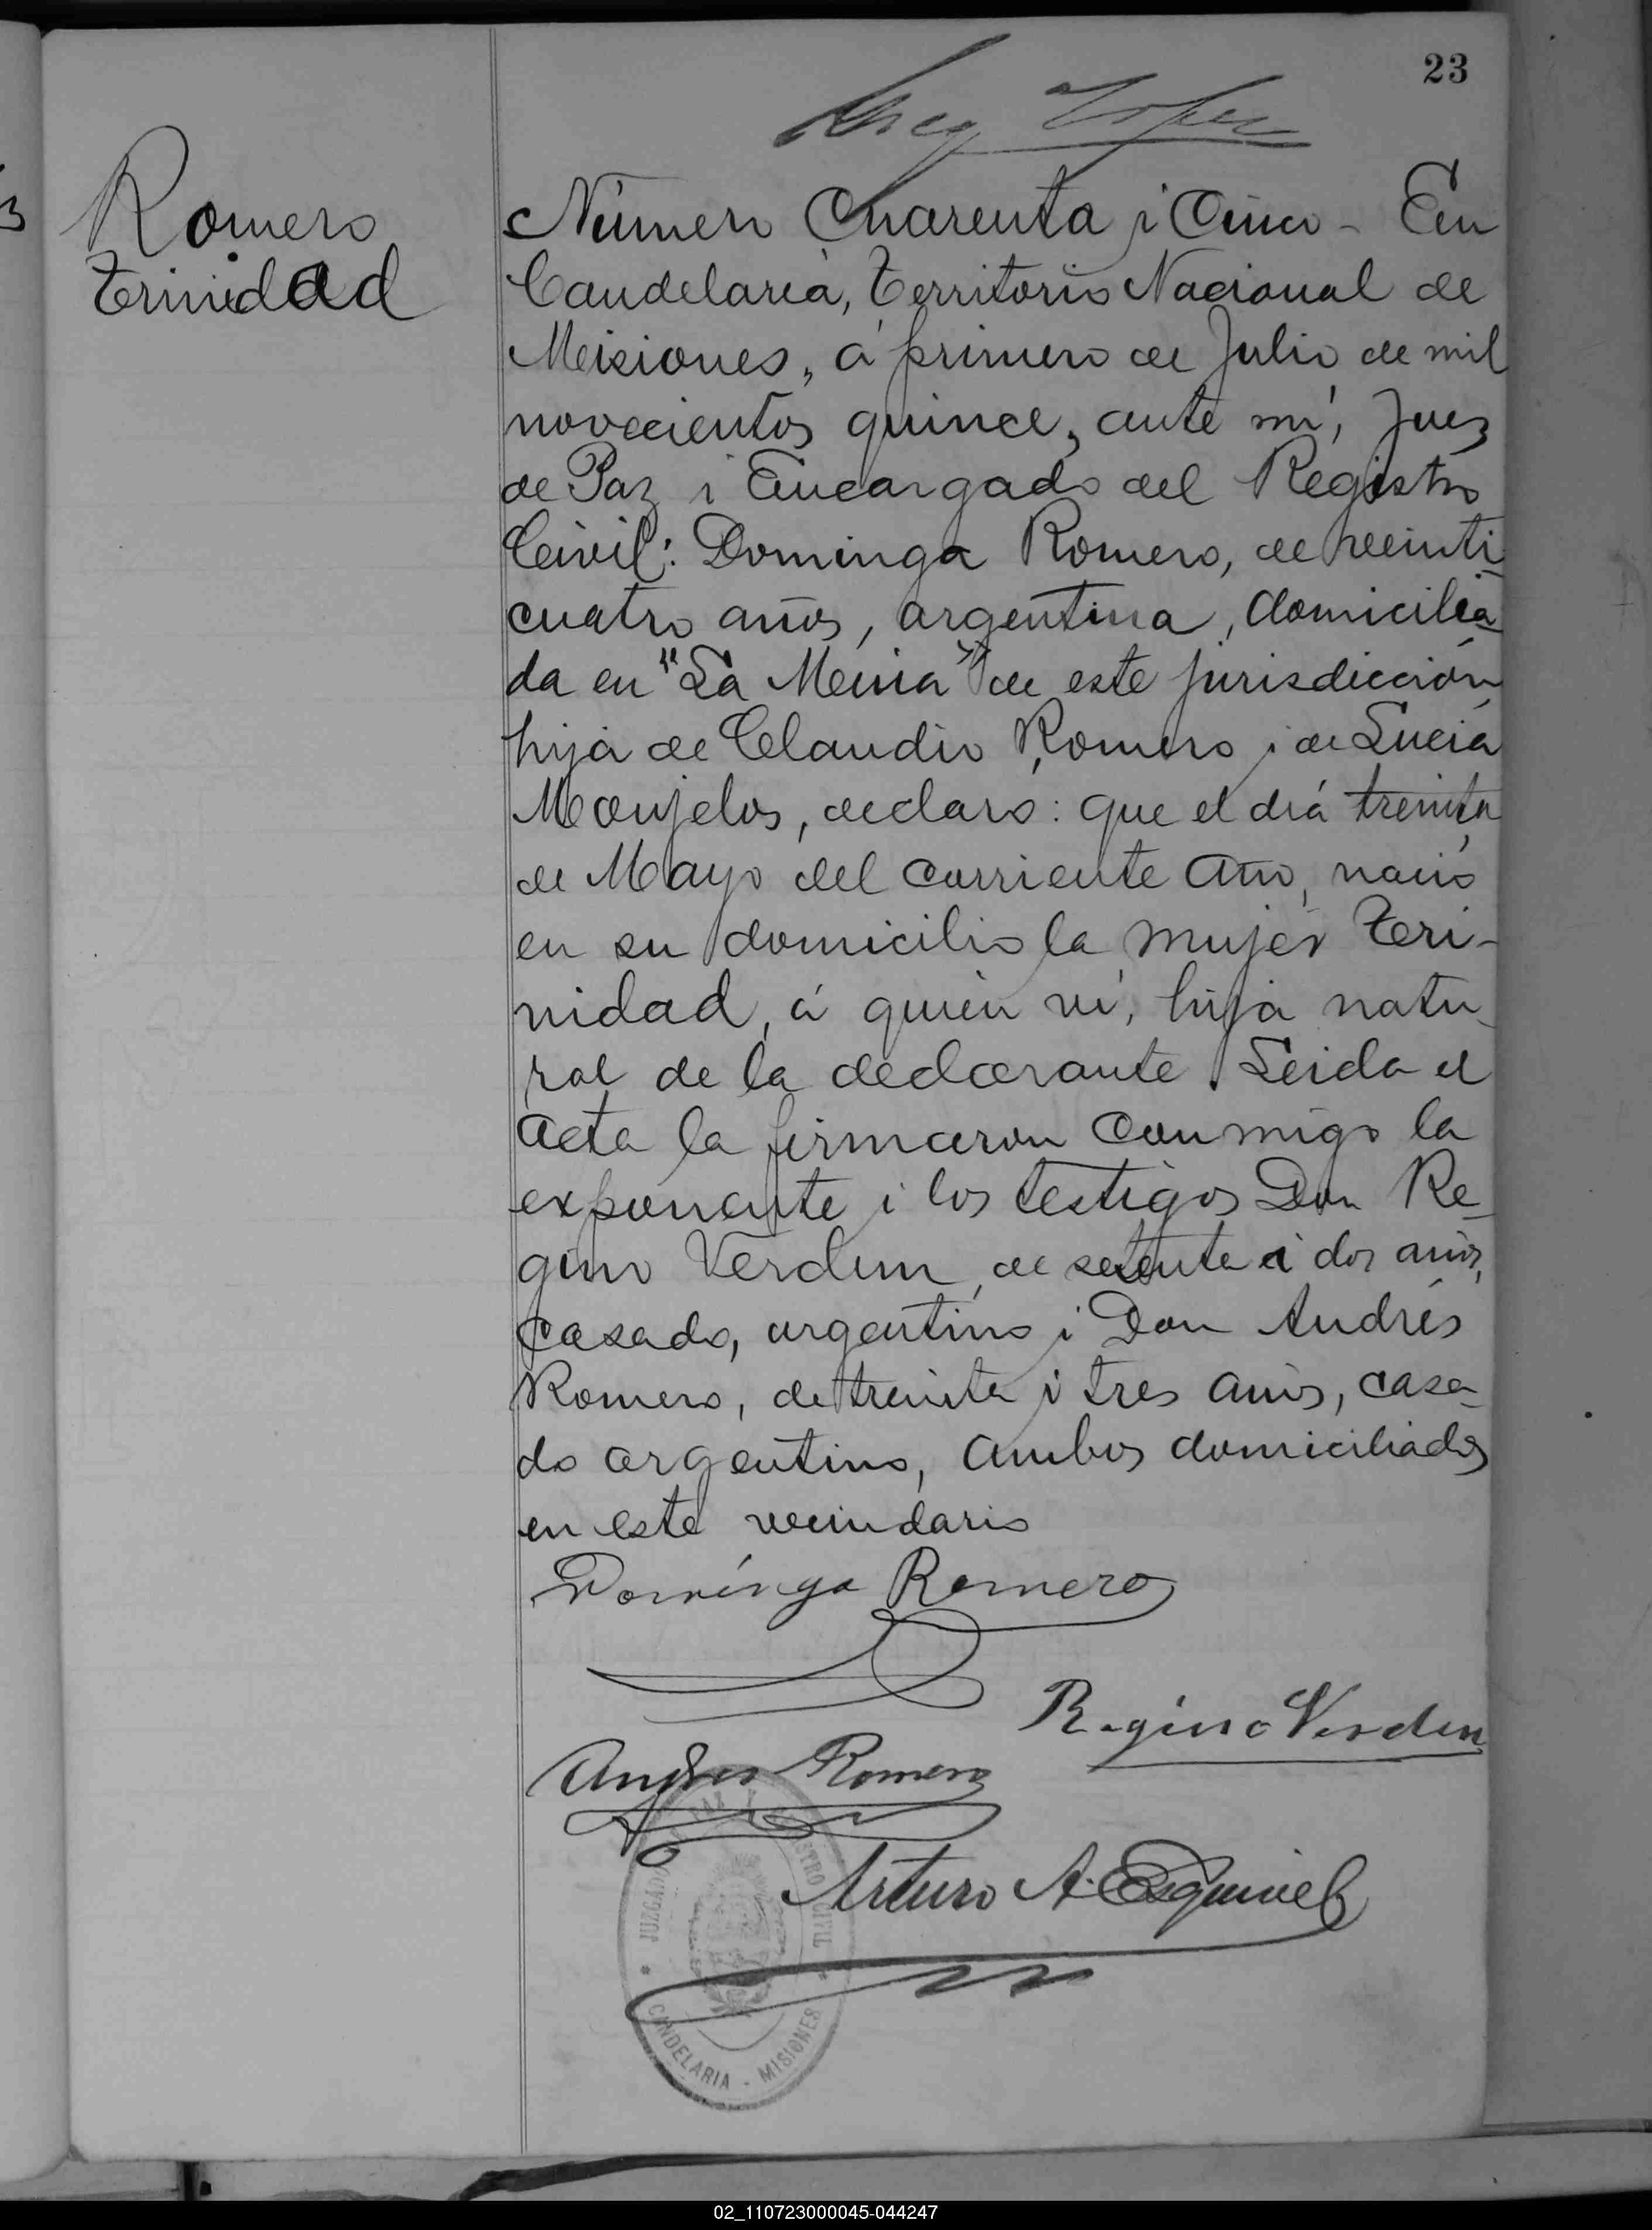 23
Romero
Terinidad
Número Cuarenta i Cinco - En
Candelaria, Territorio Nacional de
Misiones, á primero de Julio de mil
novecientos quince, ante mí, Juez
de Paz i Encargado del Registro
Civil: Dominga Romero, de veinti-
cuatro años, argentina, domicilia-
da en "La Mina" de este jurisdicción
hija de Claudio Romero i de Lucia
Monjelos, declaro: que el diá treinta
de Mayo del corriente año, nació
en su domicilio la mujer Teri-
nidad, á quien ví, hija natu-
ral de la declarante. Leida el
acta la firmaron conmigo la
exponente i los testigos Don Re-
gino Verdun, de setenta i dos años,
casado, argentino i Don Andrés
Romero, de treinta i tres años, casa-
do argentino, ambos domiciliados
en este vecindario
Domínga Romero
Regino Verdun
Andres Romero
Arturo A. Esquivel
JUZGADO DE PAZ Y REGISTRO CIVIL
CANDELARIA - MISIONES
02_110723000045-044247